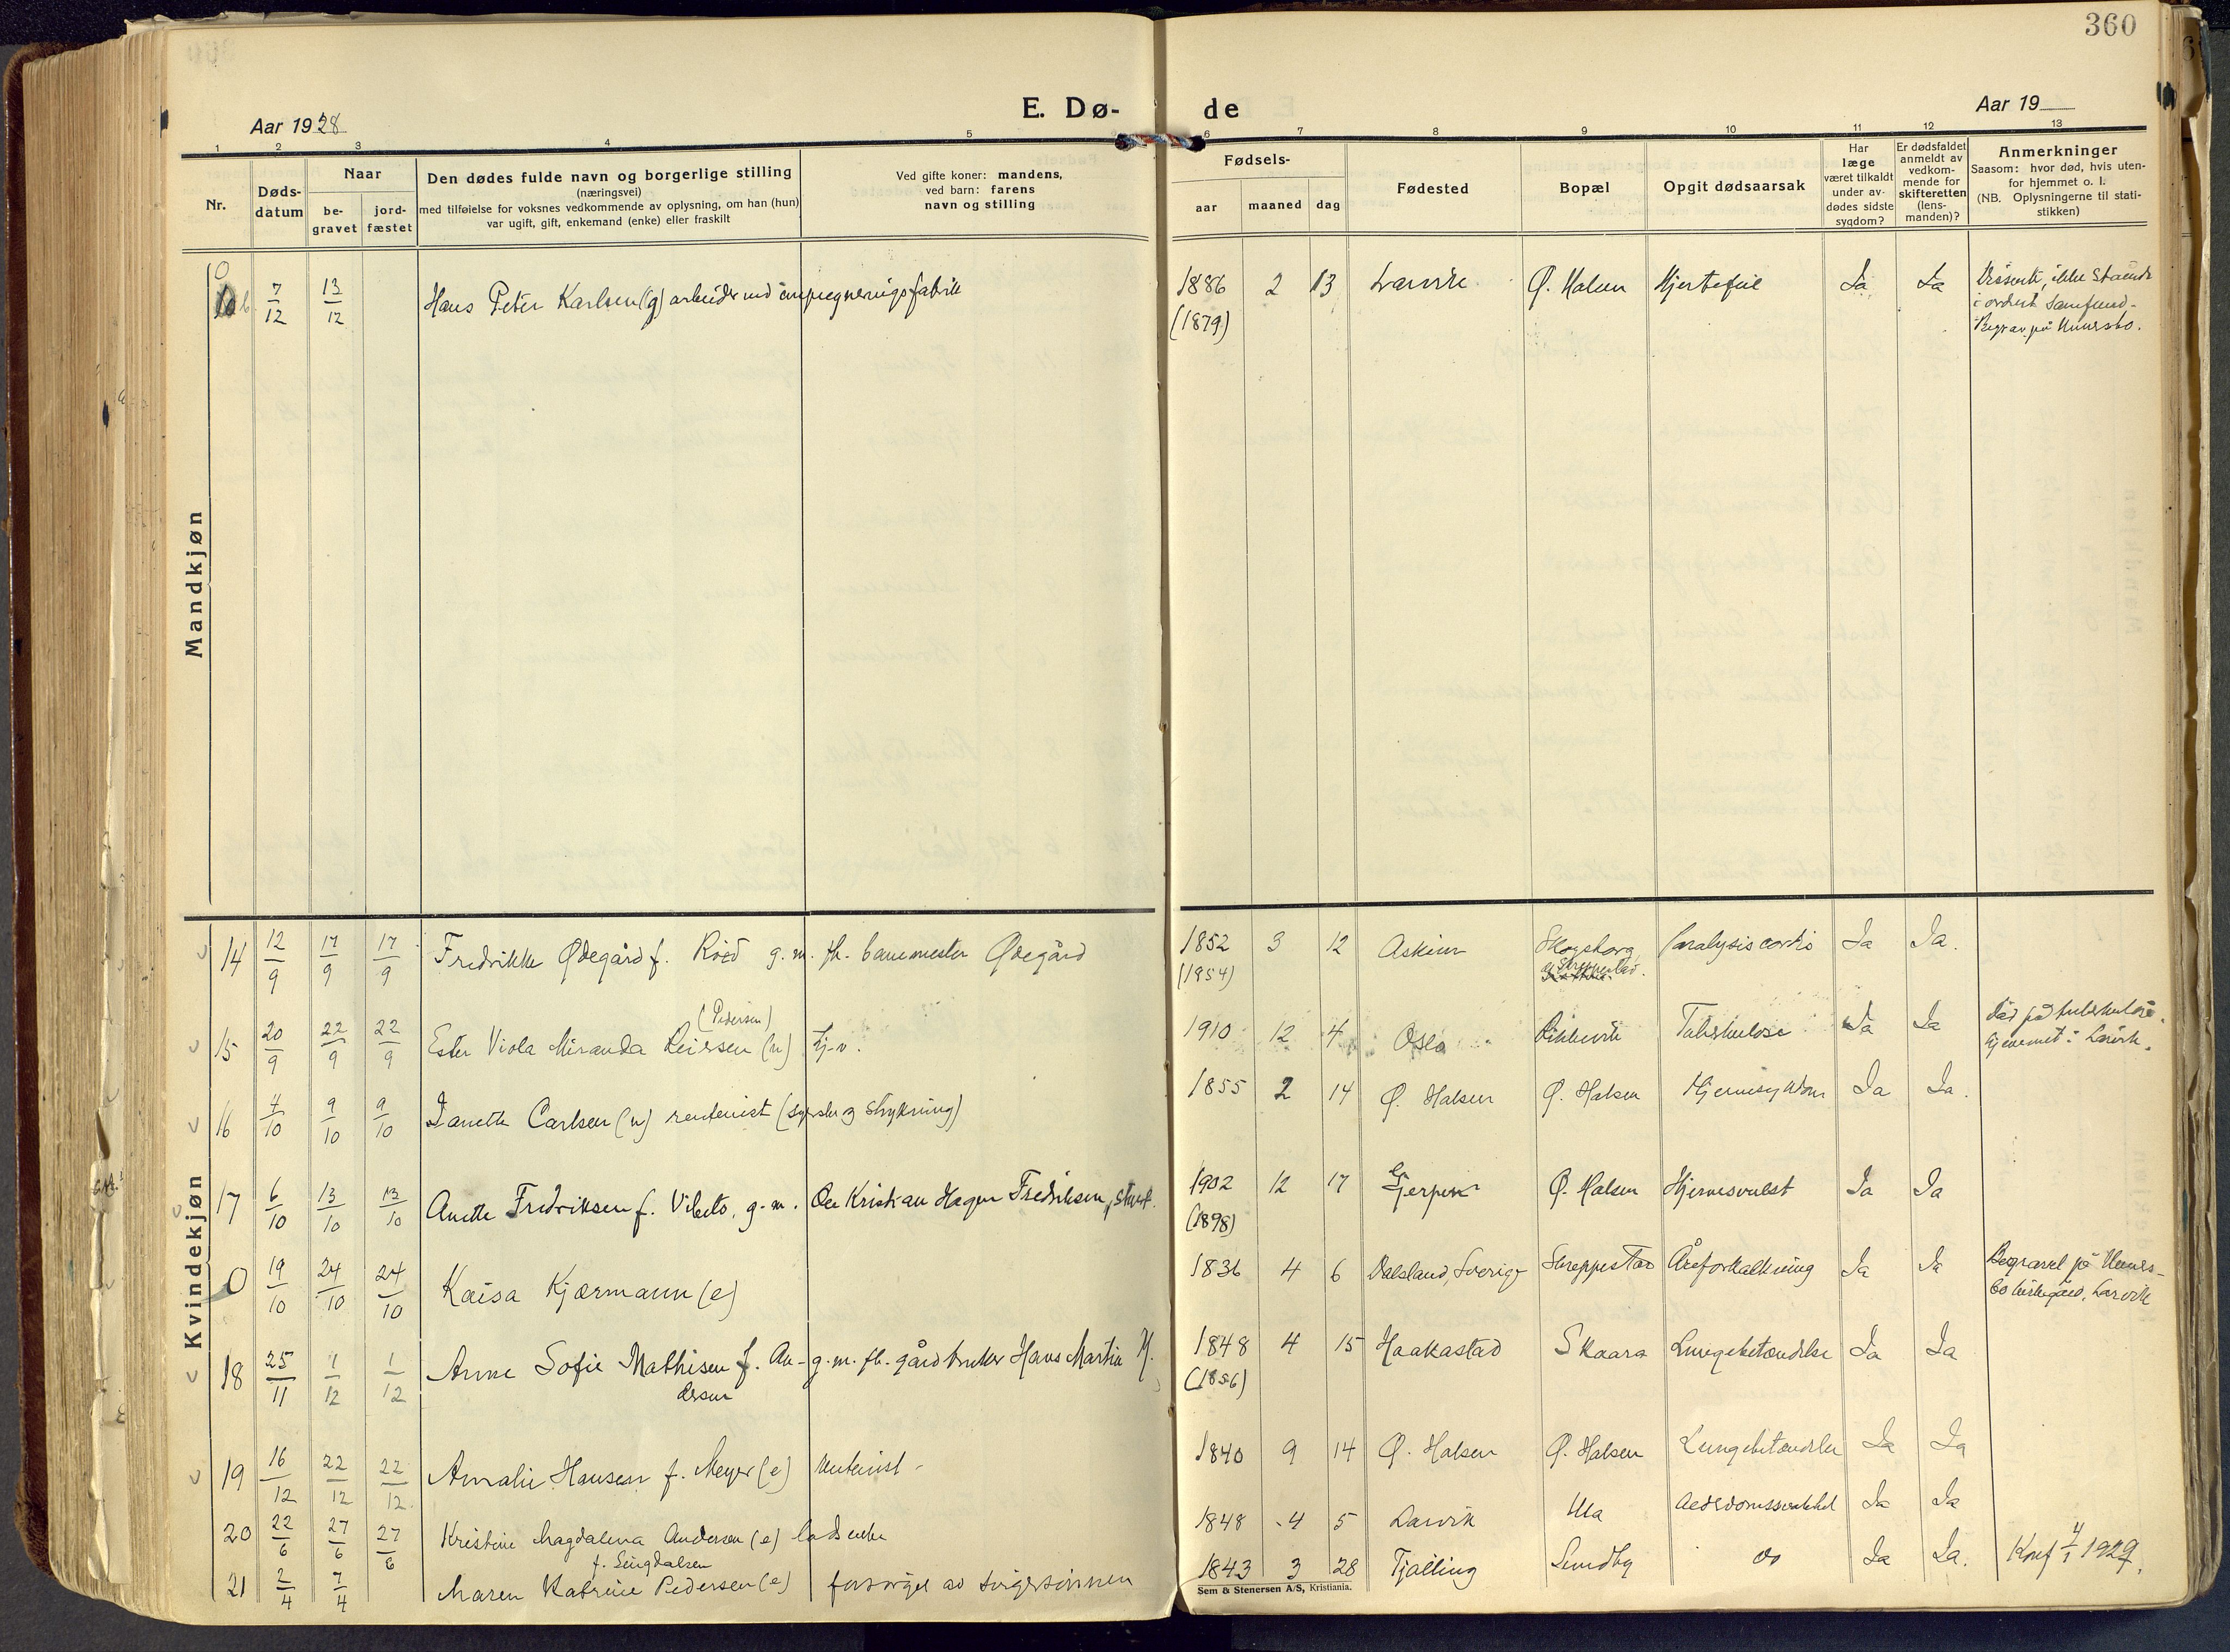 360
Aar 1928
E. Dø-
de
Aar 19
1 2 3 4 5
6 7 8 9 10 11 12 13
Nr.
Døds-
datum
Naar
be-
gravet
jord-
fæstet
Den dødes fulde navn og borgerlige stilling
(næringsvei)
med tilføielse for voksnes vedkommende av oplysning, om han (hun)
var ugift, gift, enkemand (enke) eller fraskilt
Ved gifte koner: mandens,
ved barn: farens
navn og stilling
Fødsels-
aar maaned dag
Fødested
Bopæl
Opgit dødsaarsak
Har
læge
været tilkaldt
under av-
dødes sidste
sygdom?
Er dødsfaldet
anmeldt av
vedkom-
mende for
skifteretten
(lens-
manden)?
Anmerkninger
Saasom: hvor død, hvis uten-
for hjemmet o. l.
(NB. Oplysningerne til stati-
stikken)
Mandkjøn
0
7/12 13/12 Hans Peter Karlsen (g) arbeider ved impregneringsfabrik 1886 2 13 Larvik Ø. Halsen Hjertefeil Ja Ja Dissenter, ikke staaende
(1879) i ordnet samfund.
Begrav. på Undersbo.
Kvindekjøn
14 12/9 17/9 17/9 Fredrikke Ødegård f. Röed g. m. fh. banemester Ødegård 1852 3 12 Askim Skogsborg Paralysis cordis Ja Ja.
(1854) Skreppestad.
(Pedersen)
15 20/9 22/9 22/9 Ester Viola Miranda Reiersen (u) tj.v. 1910 12 4 Oslo Rikkevik Tuberkulose Ja Ja Död på tuberkulose
hjemmet i Larvik.
16 4/10 9/10 9/10 Janette Carlsen (u) rentenist (syerske og strykning) 1855 2 14 Ø. Halsen Ø. Halsen Hjernesykdom Ja Ja.
17 6/10 13/10 13/10 Anette Fredriksen f. Vibeto, g. m. Ole Kristian Hagen Fredriksen, 1902 12 17 Gjerpen Ø. Halsen Hjernesvulst Ja Ja
(1898)
0 19/10 24/10 24/10 Kaisa Kjærmann (e) 1836 4 6 Dalsland, Sverige Skreppestad Åreforkalkning Ja Ja Begravet på Unders-
bo kirkegård, Larvik
18 25/11 1/12 1/12 Anne Sofie Mathisen f. An- g. m. fh. gårdbruker Hans Martin M. 1848 4 15 Haakastad Skaara Lungebetændelse Ja Ja
dersen (1856)
19 16/12 22/12 22/12 Amalie Hansen f. Meyer (e) rentenist 1840 9 14 Ø. Halsen Ø. Halsen Lungebetændelse Ja Ja
20 22/6 27/6 27/6 Kristine Magdalena Andersen (e) losenke 1848 4 5 Larvik Ula Alderdomssvakhet Ja Ja
21 2/4 7/4 Maren Katrine Pedersen (e) forsørget av svigersønnen 1843 3 28 Tjølling Lundby do Ja Ja. Konf 4/1 1929.
Sem & Stenersen A/S, Kristiania.